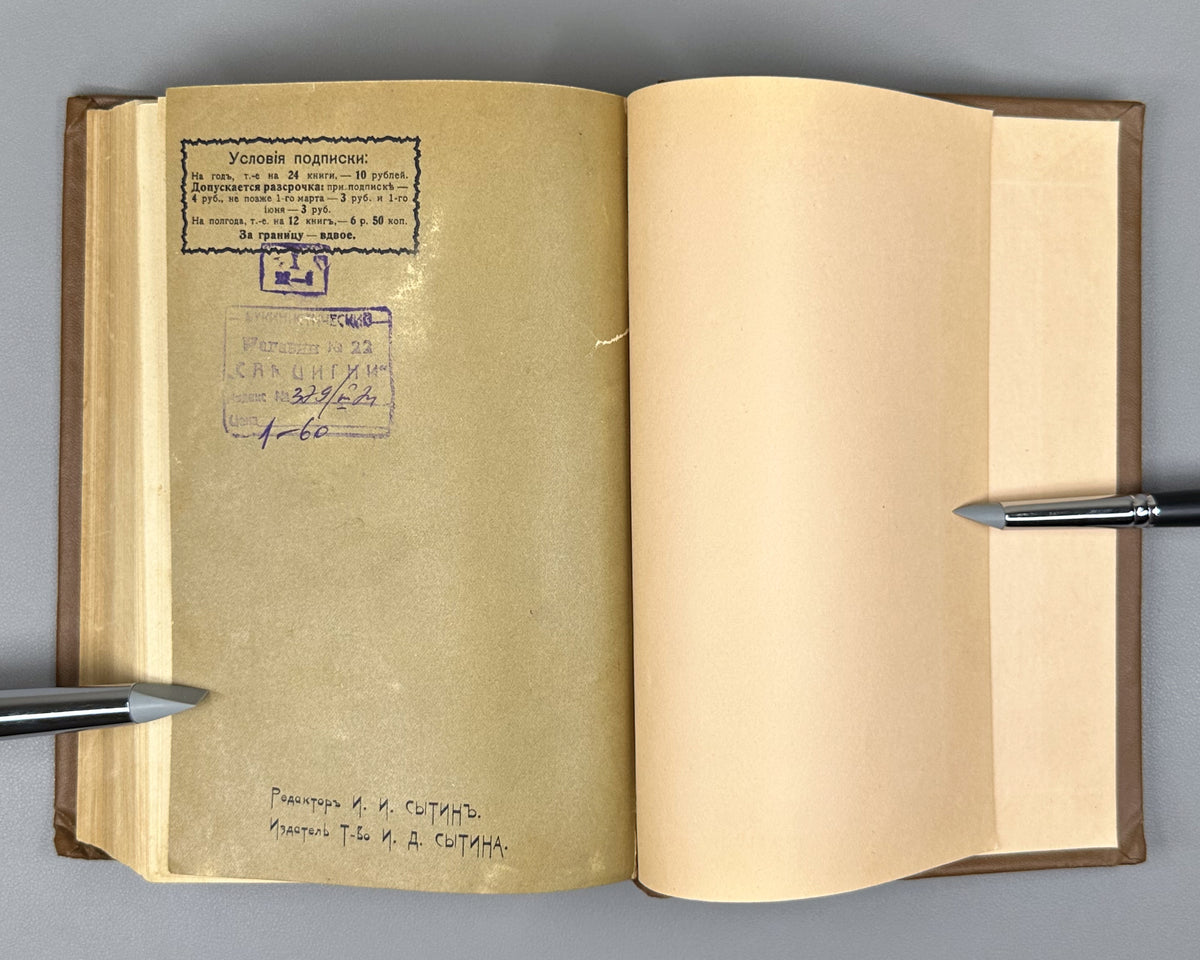 Условія подписки:
На годъ, т.-е на 24 книги, — 10 рублей.
Допускается разсрочка: при подпискѣ —
4 руб., не позже 1-го марта — 3 руб. и 1-го
іюня — 3 руб.
На полгода, т.-е. на 12 книгъ, — 6 р. 50 коп.
За границу — вдвое.
Магазин № 22
№
1-60
Редакторъ И. И. СЫТИНЪ.
Издатель Т-во И. Д. СЫТИНА.